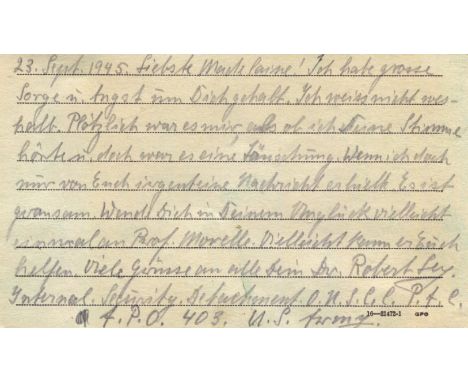 23. Sept. 1945. Liebste Madelaine! Ich habe grosse
Sorge u. Angst um Dich gehabt. Ich weiss nicht wes-
halb. Plötzlich war es mir, als ob ich Deine Stimme
hörte u. doch war es eine Täuschung. Wenn ich doch
nur von Euch irgenteine Nachricht erhielt. Es ist
grausam. Wende Dich in Deinem Unglück vielleicht
einmal an Prof. Morelle. Vielleicht kann er Euch
helfen. Viele Grüsse an alle Dein Dr. Robert Ley.
Internal. Security. Detachment. O.U.S.C.C. P.t.C.
A.P.O. 403. U.S. Army.
16—21472-1 GPO